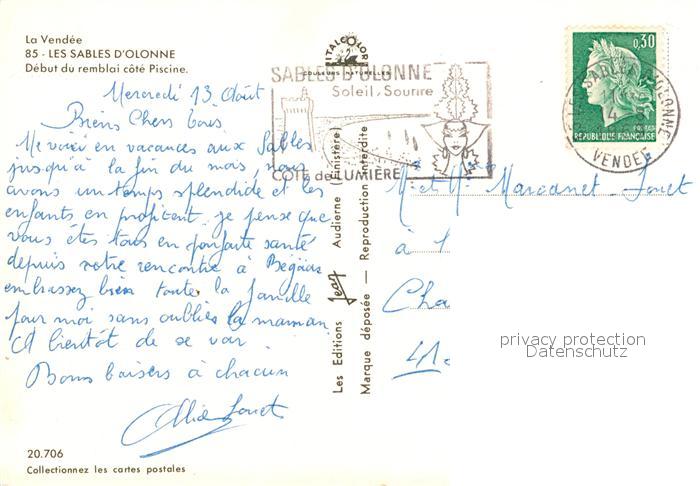 La Vendée
85 - LES SABLES D'OLONNE
Début du remblai côté Piscine.
Mercredi 13 Août
Biens Chers tous
Me voici en vacances aux Sables
jusqu'à la fin du mois, nous
avons un temps splendide et les
enfants en profitent, je pense que
vous êtes tous en parfaite santé
depuis notre rencontre à
embrassez bien toute la famille
pour moi sans oublier la maman
A bientôt de se voir
Bons baisers à chacun
20.706
Collectionnez les cartes postales
ITALCOLOR
COULEURS NATURELLES
SABLES D'OLONNE
Soleil, Sourire
CÔTE de LUMIÈRE
Les Editions Jean Audierne (Finistère)
Marque déposée — Reproduction interdite
0,30
POSTES
REPUBLIQUE FRANÇAISE
SABLES D'OLONNE
14
VENDEE
M et Me
à
Cha
41
privacy protection
Datenschutz